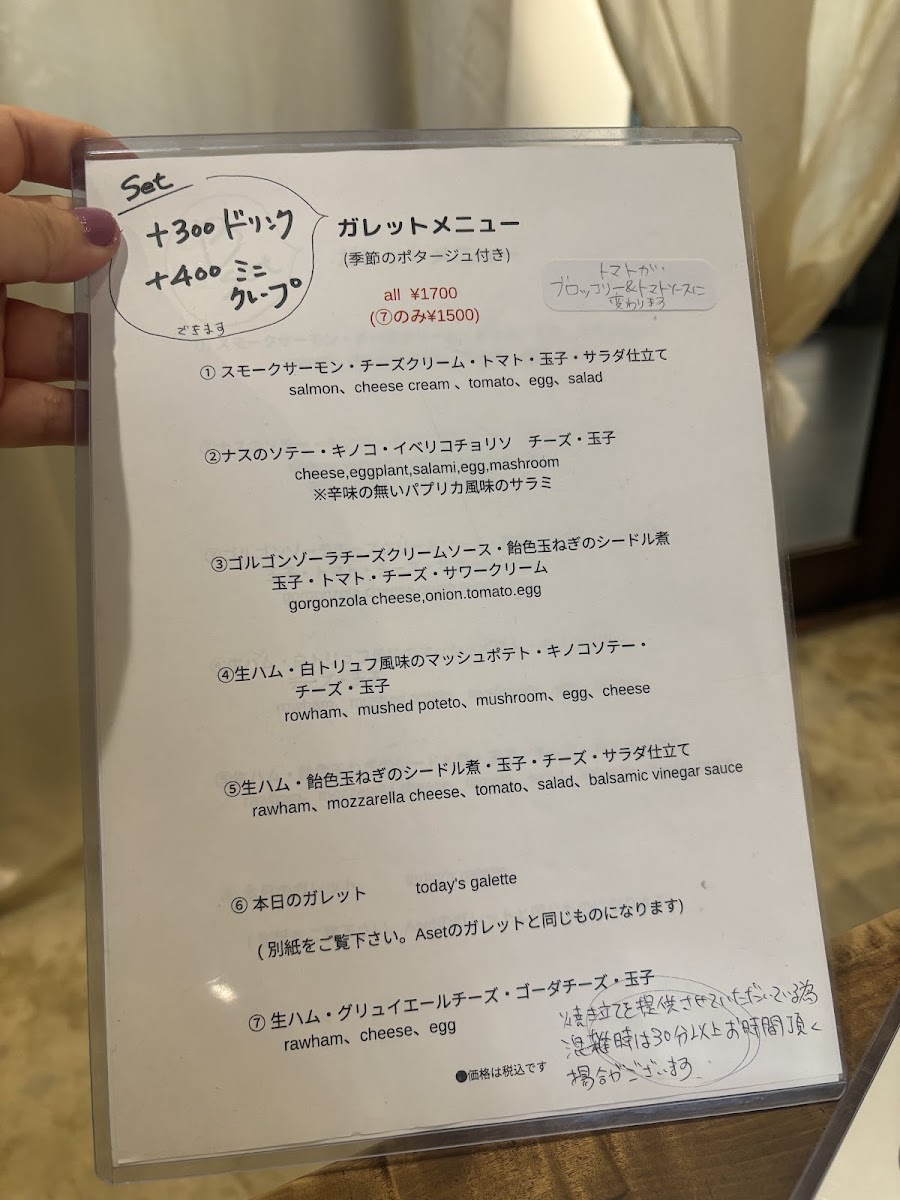 Set
+300 ドリンク
+400 ミニ
クレープ
できます
ガレットメニュー
(季節のポタージュ付き)
all ¥1700
(⑦のみ¥1500)
トマトが
ブロッコリー&トマトソースに
変わります
① スモークサーモン・チーズクリーム・トマト・玉子・サラダ仕立て
salmon、cheese cream 、tomato、egg、salad
②ナスのソテー・キノコ・イベリコチョリソ　チーズ・玉子
cheese,eggplant,salami,egg,mashroom
※辛味の無いパプリカ風味のサラミ
③ゴルゴンゾーラチーズクリームソース・飴色玉ねぎのシードル煮
玉子・トマト・チーズ・サワークリーム
gorgonzola cheese,onion.tomato.egg
④生ハム・白トリュフ風味のマッシュポテト・キノコソテー・
チーズ・玉子
rowham、mushed poteto、mushroom、egg、cheese
⑤生ハム・飴色玉ねぎのシードル煮・玉子・チーズ・サラダ仕立て
rawham、mozzarella cheese、tomato、salad、balsamic vinegar sauce
⑥ 本日のガレット today's galette
( 別紙をご覧下さい。Asetのガレットと同じものになります)
⑦ 生ハム・グリュイエールチーズ・ゴーダチーズ・玉子
rawham、cheese、egg
焼き立てを提供させていただいている為
混雑時は30分以上お時間頂く
場合がございます.
●価格は税込です